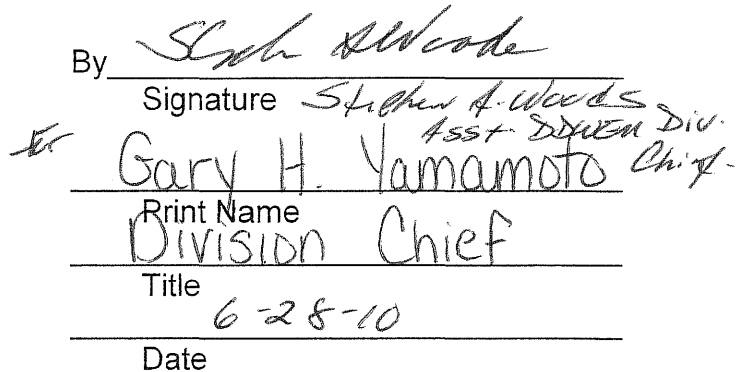 By Stephen A Woods
Signature Stephen A. Woods
Asst. DDWEM Div.
for Gary H. Yamamoto Chief
Print Name
Division Chief
Title
6-28-10
Date